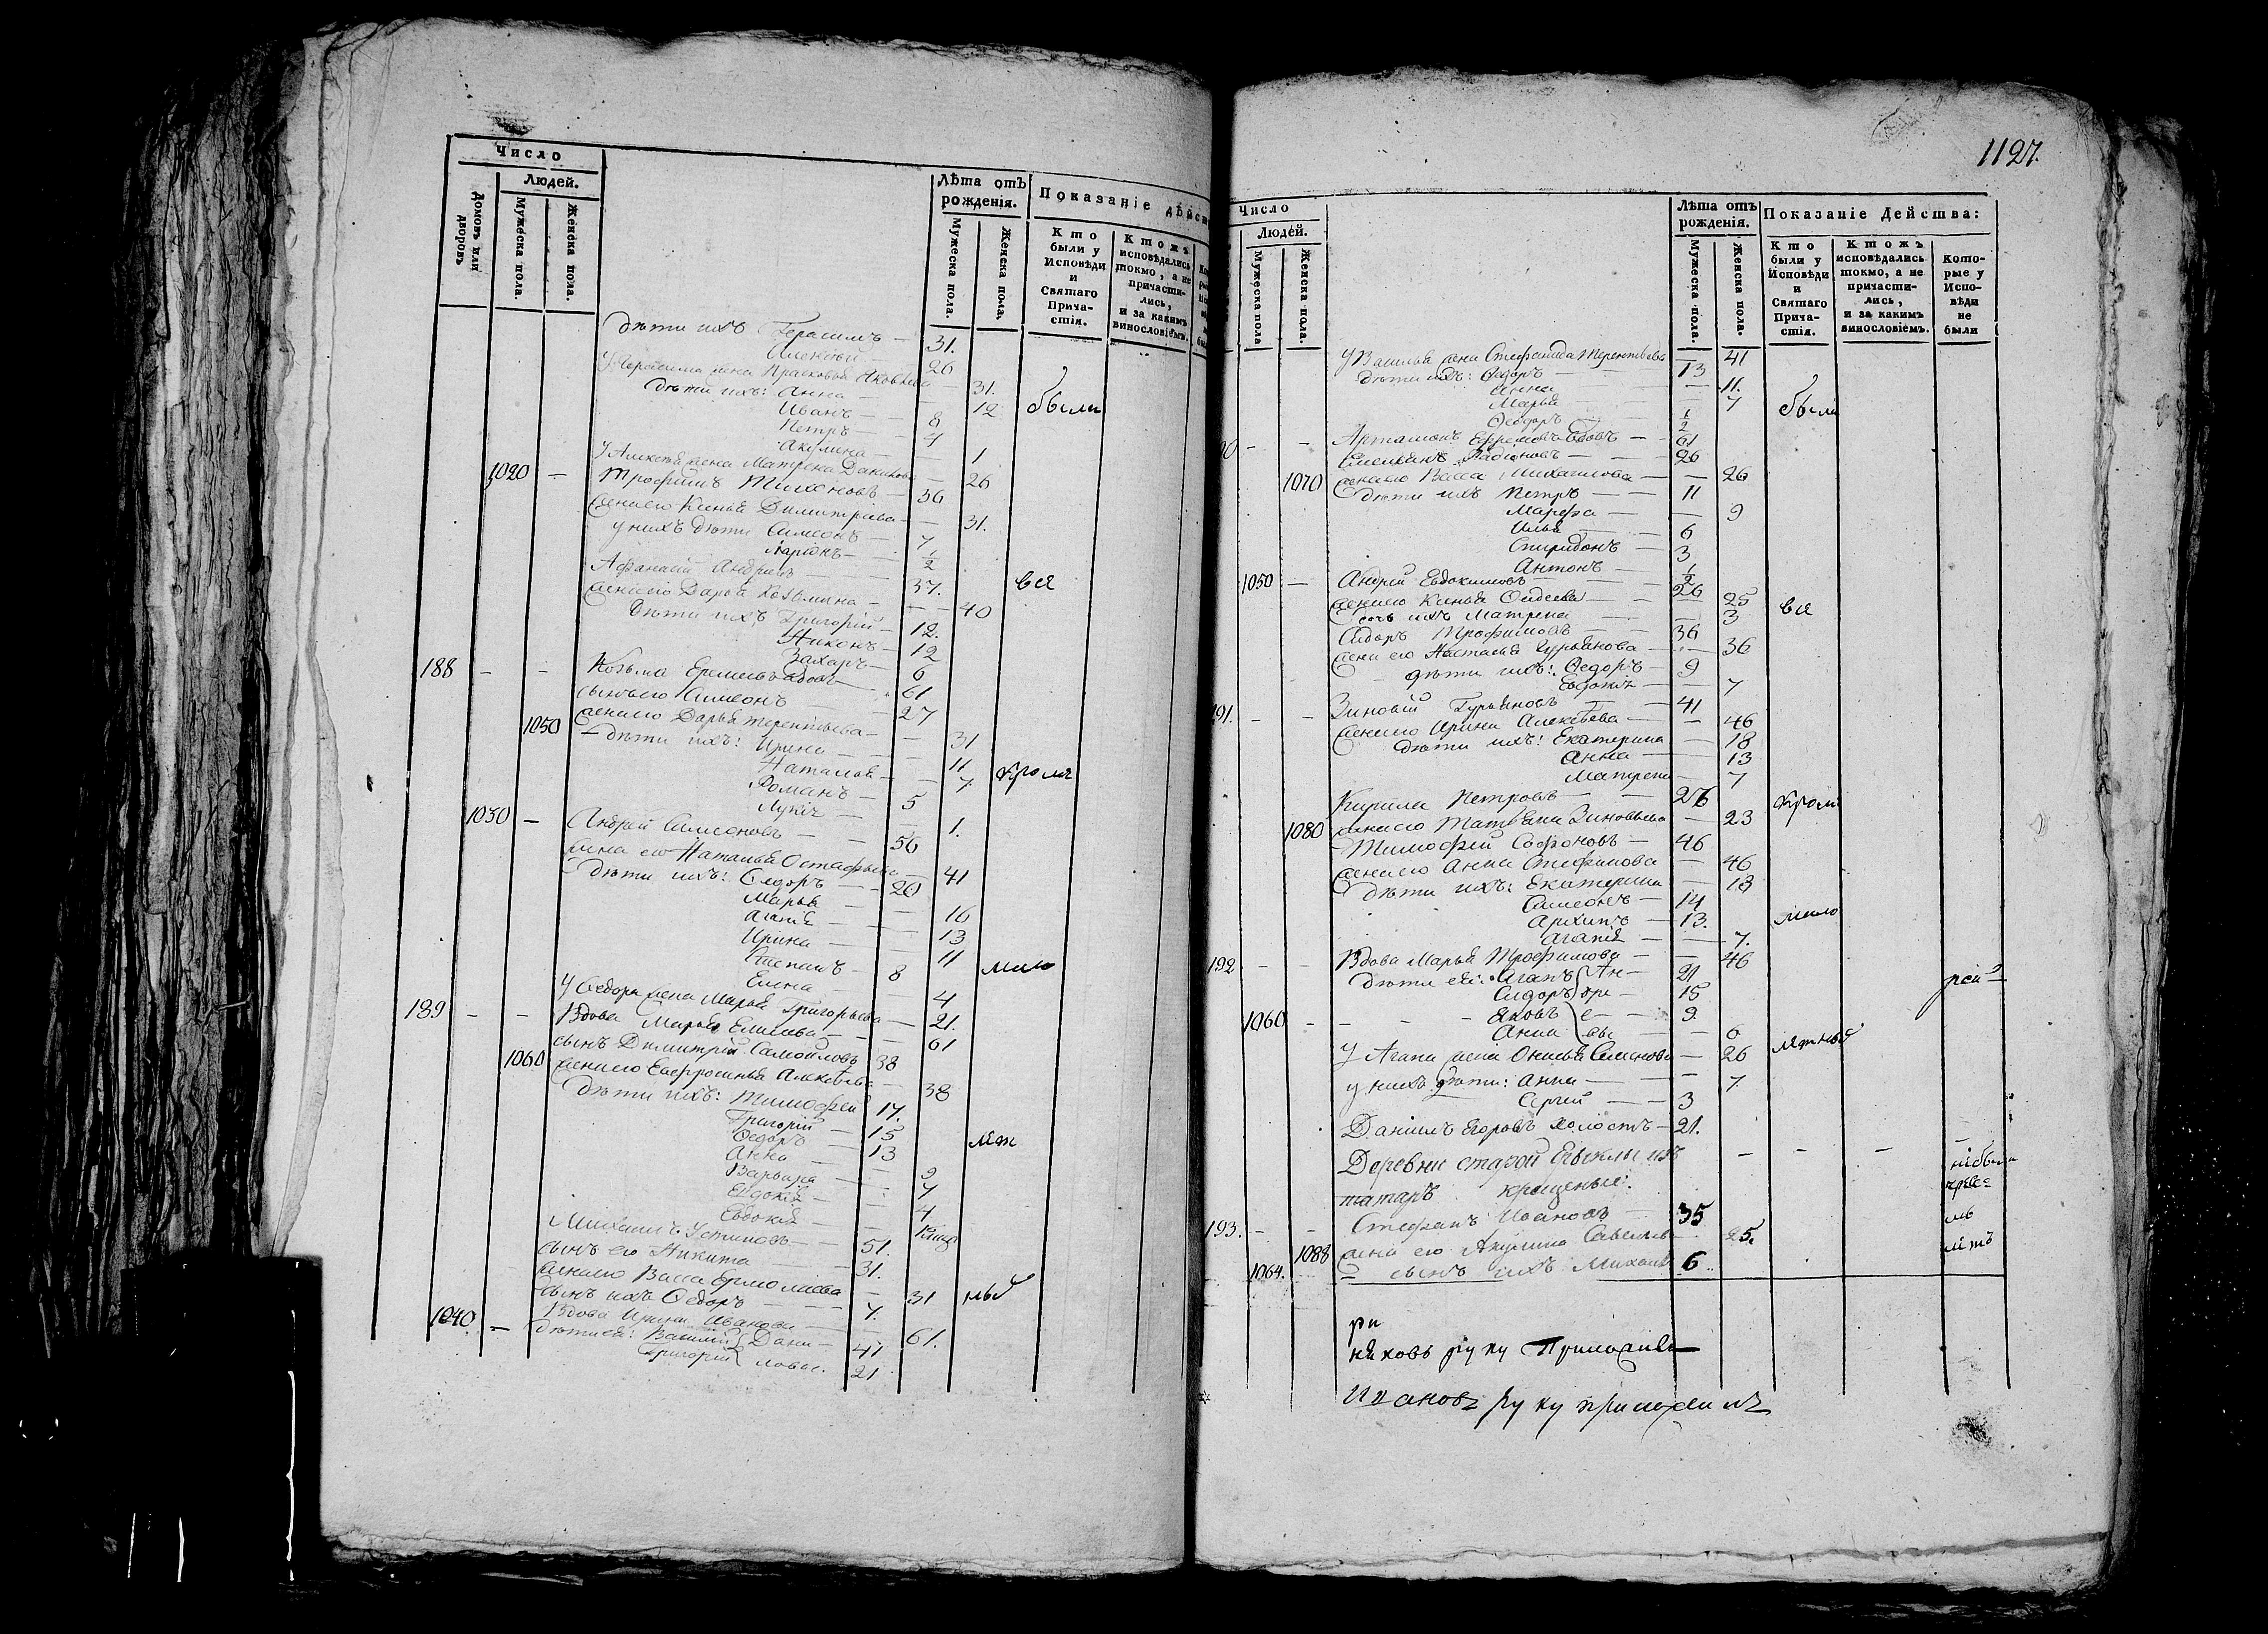 Число
Людей.
Домовъ или дворовъ
Мужеска пола.
Женска пола.
Лѣта отъ рожденія.
Мужеска пола.
Женска пола.
Показаніе дѣйст
Кто были у Исповѣди и Святаго Прича-стія.
Ктожъ исповѣдались токмо, а не причасти-лись, и за какимъ винословіемъ.
дѣти ихъ Герасимъ — 31.
Алексѣй — 26
У Герасима жена Прасковья Яковлева — 31.
дѣти ихъ: Анна — 12 были
Иванъ — 8
Петръ — 4
Акулина — 1
У Алексѣя жена Матрена Данилова — 26
1020 — Трофимъ Тихоновъ — 36
жена его Ксенья Димитріева — 31.
у нихъ дѣти Симеонъ — 7
Ларіонъ — 1/2
Афанасій Андреевъ — 37. всѣ
жена его Дарья Козьмина — 40
дѣти ихъ Григорій — 12.
Никонъ — 12
Захаръ — 6
188 — — Козьма Еремѣевъ вдовъ — 61
сынъ его Симеонъ — 27
1050 жена его Дарья Терентьева — 31
дѣти ихъ: Ирина — 11
Наталья — 7 кромѣ
Романъ — 5
1.
1030 — Андрей Симеоновъ — 56
жена его Наталья Остафьева — 41
дѣти ихъ: Ѳедоръ — 20
Марья — 16
Агапія — 13
Ирина — 11
Степанъ — 8
Елена — 4
У Ѳедора жена Марья Григорьева — 21.
189 — — Вдова Марья Елисеева — 61
сынъ Димитрій Самойловъ 38
1060 жена его Евфросинья Алексѣева — 38
дѣти ихъ: Тимофей 17.
Григорій — 15
Ѳедоръ — 13
Анна — 9
Варвара — 7
Евдокія — 4
Евдокія —
Михаилъ Устиновъ — 51.
сынъ его Никита 31.
жена его Васса Ермолаева — 31
сынъ ихъ Ѳедоръ — 7.
1040 — Вдова Ирина Иванова — 61.
дѣти ея: Василій Дани- 47
Григорій ловы. 21
1127.
Число
Людей.
Мужеска пола
Женска пола.
Лѣта отъ рожденія.
Мужеска пола.
Женска пола.
Показаніе Дейсства:
Кто были у Исповѣди и Святаго Прича-стія.
Ктожъ исповѣдались токмо, а не причасти-лись, и за какимъ винословіемъ.
Кото-рые у Испо-вѣди не были
У Василья жена Стефанида Терентьева — 41
дѣти ихъ: Ѳедоръ — 13
Анна — 11.
Марья — 7 были
Ѳеодоръ — 1/2
Артамонъ Ефремовъ вдовъ — 61
Емельянъ Радіоновъ — 26
1070 жена его Васса Михаилова — 26
дѣти ихъ Петръ — 11
Марфа — 9
Илья — 6
Спиридонъ — 3
Антонъ — 1/2
1050 — Андрей Евдокимовъ — 26
жена его Ксенья — 25 всѣ
дочь ихъ Матрена — 3
Сидоръ Трофимовъ — 36
жена его Настасья Гурьянова — 36
дѣти ихъ: Ѳедоръ — 9
Евдокія — 7
191. — — Зиновій Гурьяновъ — 41
жена его Ирина Алексѣева — 46
дѣти ихъ: Екатерина — 18
Анна — 13
Матрена — 7
Кирила Петровъ — 26 кромѣ
1080 жена его Татьяна Зиновьева — 23
Тимофей Софоновъ — 46
жена его Анна Стефанова — 46
дѣти ихъ: Екатерина — 18
Симеонъ — 14
Архипъ — 13.
Агапія — 7.
192 — — Вдова Марья Трофимова — 46
дѣти ея: Агапъ Ан- 21
Сидоръ дре- 15
1060 — — Яковъ е- 9
Анна вы — 6
У Агапа жена Онисья Семенова — 26
у нихъ дѣти: Анна — 7
Сергей — 3
Данилъ Егоровъ холостъ — 21.
Деревни старой изъ
татаръ крещеные:
193. — — Стефанъ Ивановъ 35
1088 жена его Акулина Савельева 25.
1064. — сынъ ихъ Михаилъ 6
руку Приложилъ
Ивановъ руку приложилъ